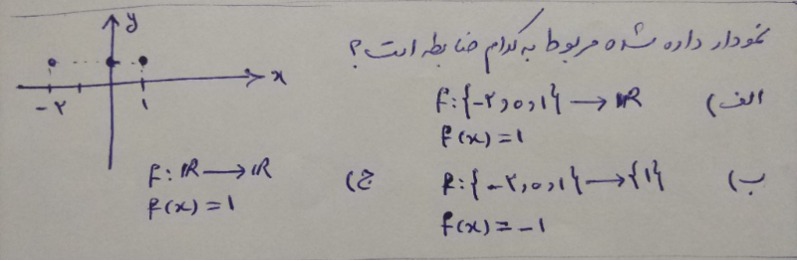 نمودار داده شده مربوط به کدام ضابطه است؟
y
x
-۲ ۱
الف) f:{-۲,۰,۱} → IR
f(x)=1
ب) f:{-۲,۰,۱} → {1}
f(x)=-1
ج) f: IR → IR
f(x)=1